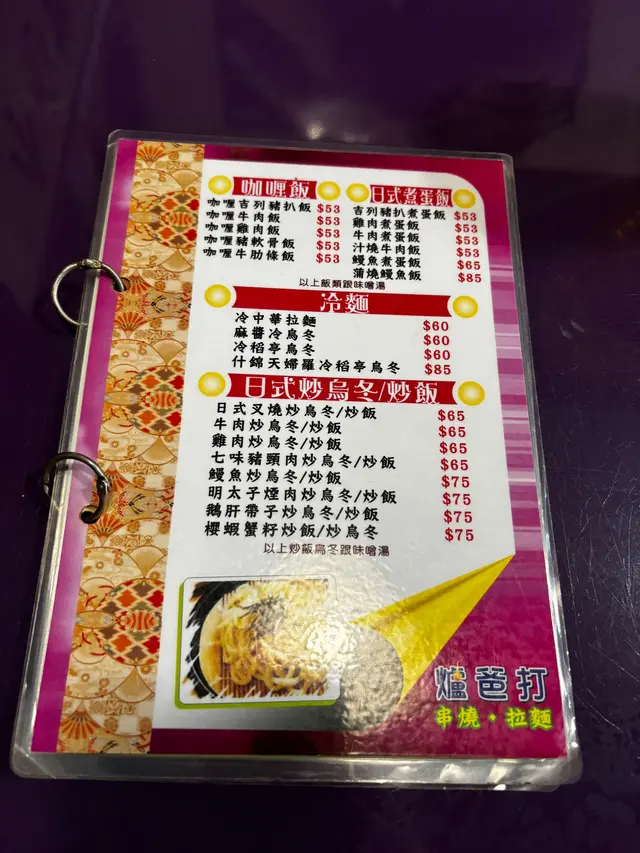 咖喱飯
咖喱吉列豬扒飯 $53
咖喱牛肉飯 $53
咖喱雞肉飯 $53
咖喱豬軟骨飯 $53
咖喱牛肋條飯 $53
日式煮蛋飯
吉列豬扒煮蛋飯 $53
雞肉煮蛋飯 $53
牛肉煮蛋飯 $53
汁燒牛肉飯 $53
鰻魚煮蛋飯 $65
蒲燒鰻魚飯 $85
以上飯類跟味噌湯
冷麵
冷中華拉麵 $60
麻醬冷烏冬 $60
冷稻亭烏冬 $60
什錦天婦羅冷稻亭烏冬 $85
日式炒烏冬/炒飯
日式叉燒炒烏冬/炒飯 $65
牛肉炒烏冬/炒飯 $65
雞肉炒烏冬/炒飯 $65
七味豬頸肉炒烏冬/炒飯 $65
鰻魚炒烏冬/炒飯 $75
明太子煙肉炒烏冬/炒飯 $75
鵝肝帶子炒烏冬/炒飯 $75
櫻蝦蟹籽炒飯/炒烏冬 $75
以上炒飯烏冬跟味噌湯
爐爸打
串燒・拉麵